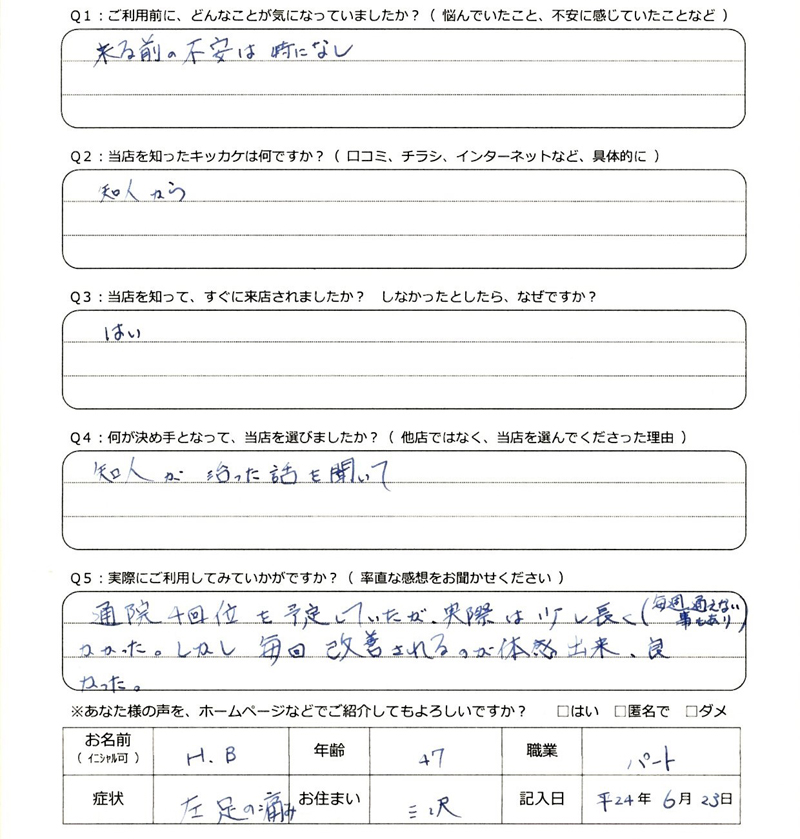 Q1：ご利用前に、どんなことが気になっていましたか？（ 悩んでいたこと、不安に感じていたことなど ）
来る前の不安は 特になし
Q2：当店を知ったキッカケは何ですか？（ 口コミ、チラシ、インターネットなど、具体的に ）
知人から
Q3：当店を知って、すぐに来店されましたか？　しなかったとしたら、なぜですか？
はい
Q4：何が決め手となって、当店を選びましたか？（ 他店ではなく、当店を選んでくださった理由 ）
知人が 治った話を聞いて
Q5：実際にご利用してみていかがですか？（ 率直な感想をお聞かせください ）
通院 十回位を予定していたが、実際は少し長く(毎週通えない事もあり)
かかった。しかし 毎回 改善されるのが体感出来、良
かった。
※あなた様の声を、ホームページなどでご紹介してもよろしいですか？　□はい　□匿名で　□ダメ
お名前（ｲﾆｼｬﾙ可） H.B 年齢 47 職業 パート
症状 左足の痛み お住まい 三沢 記入日 平24年 6月 23日